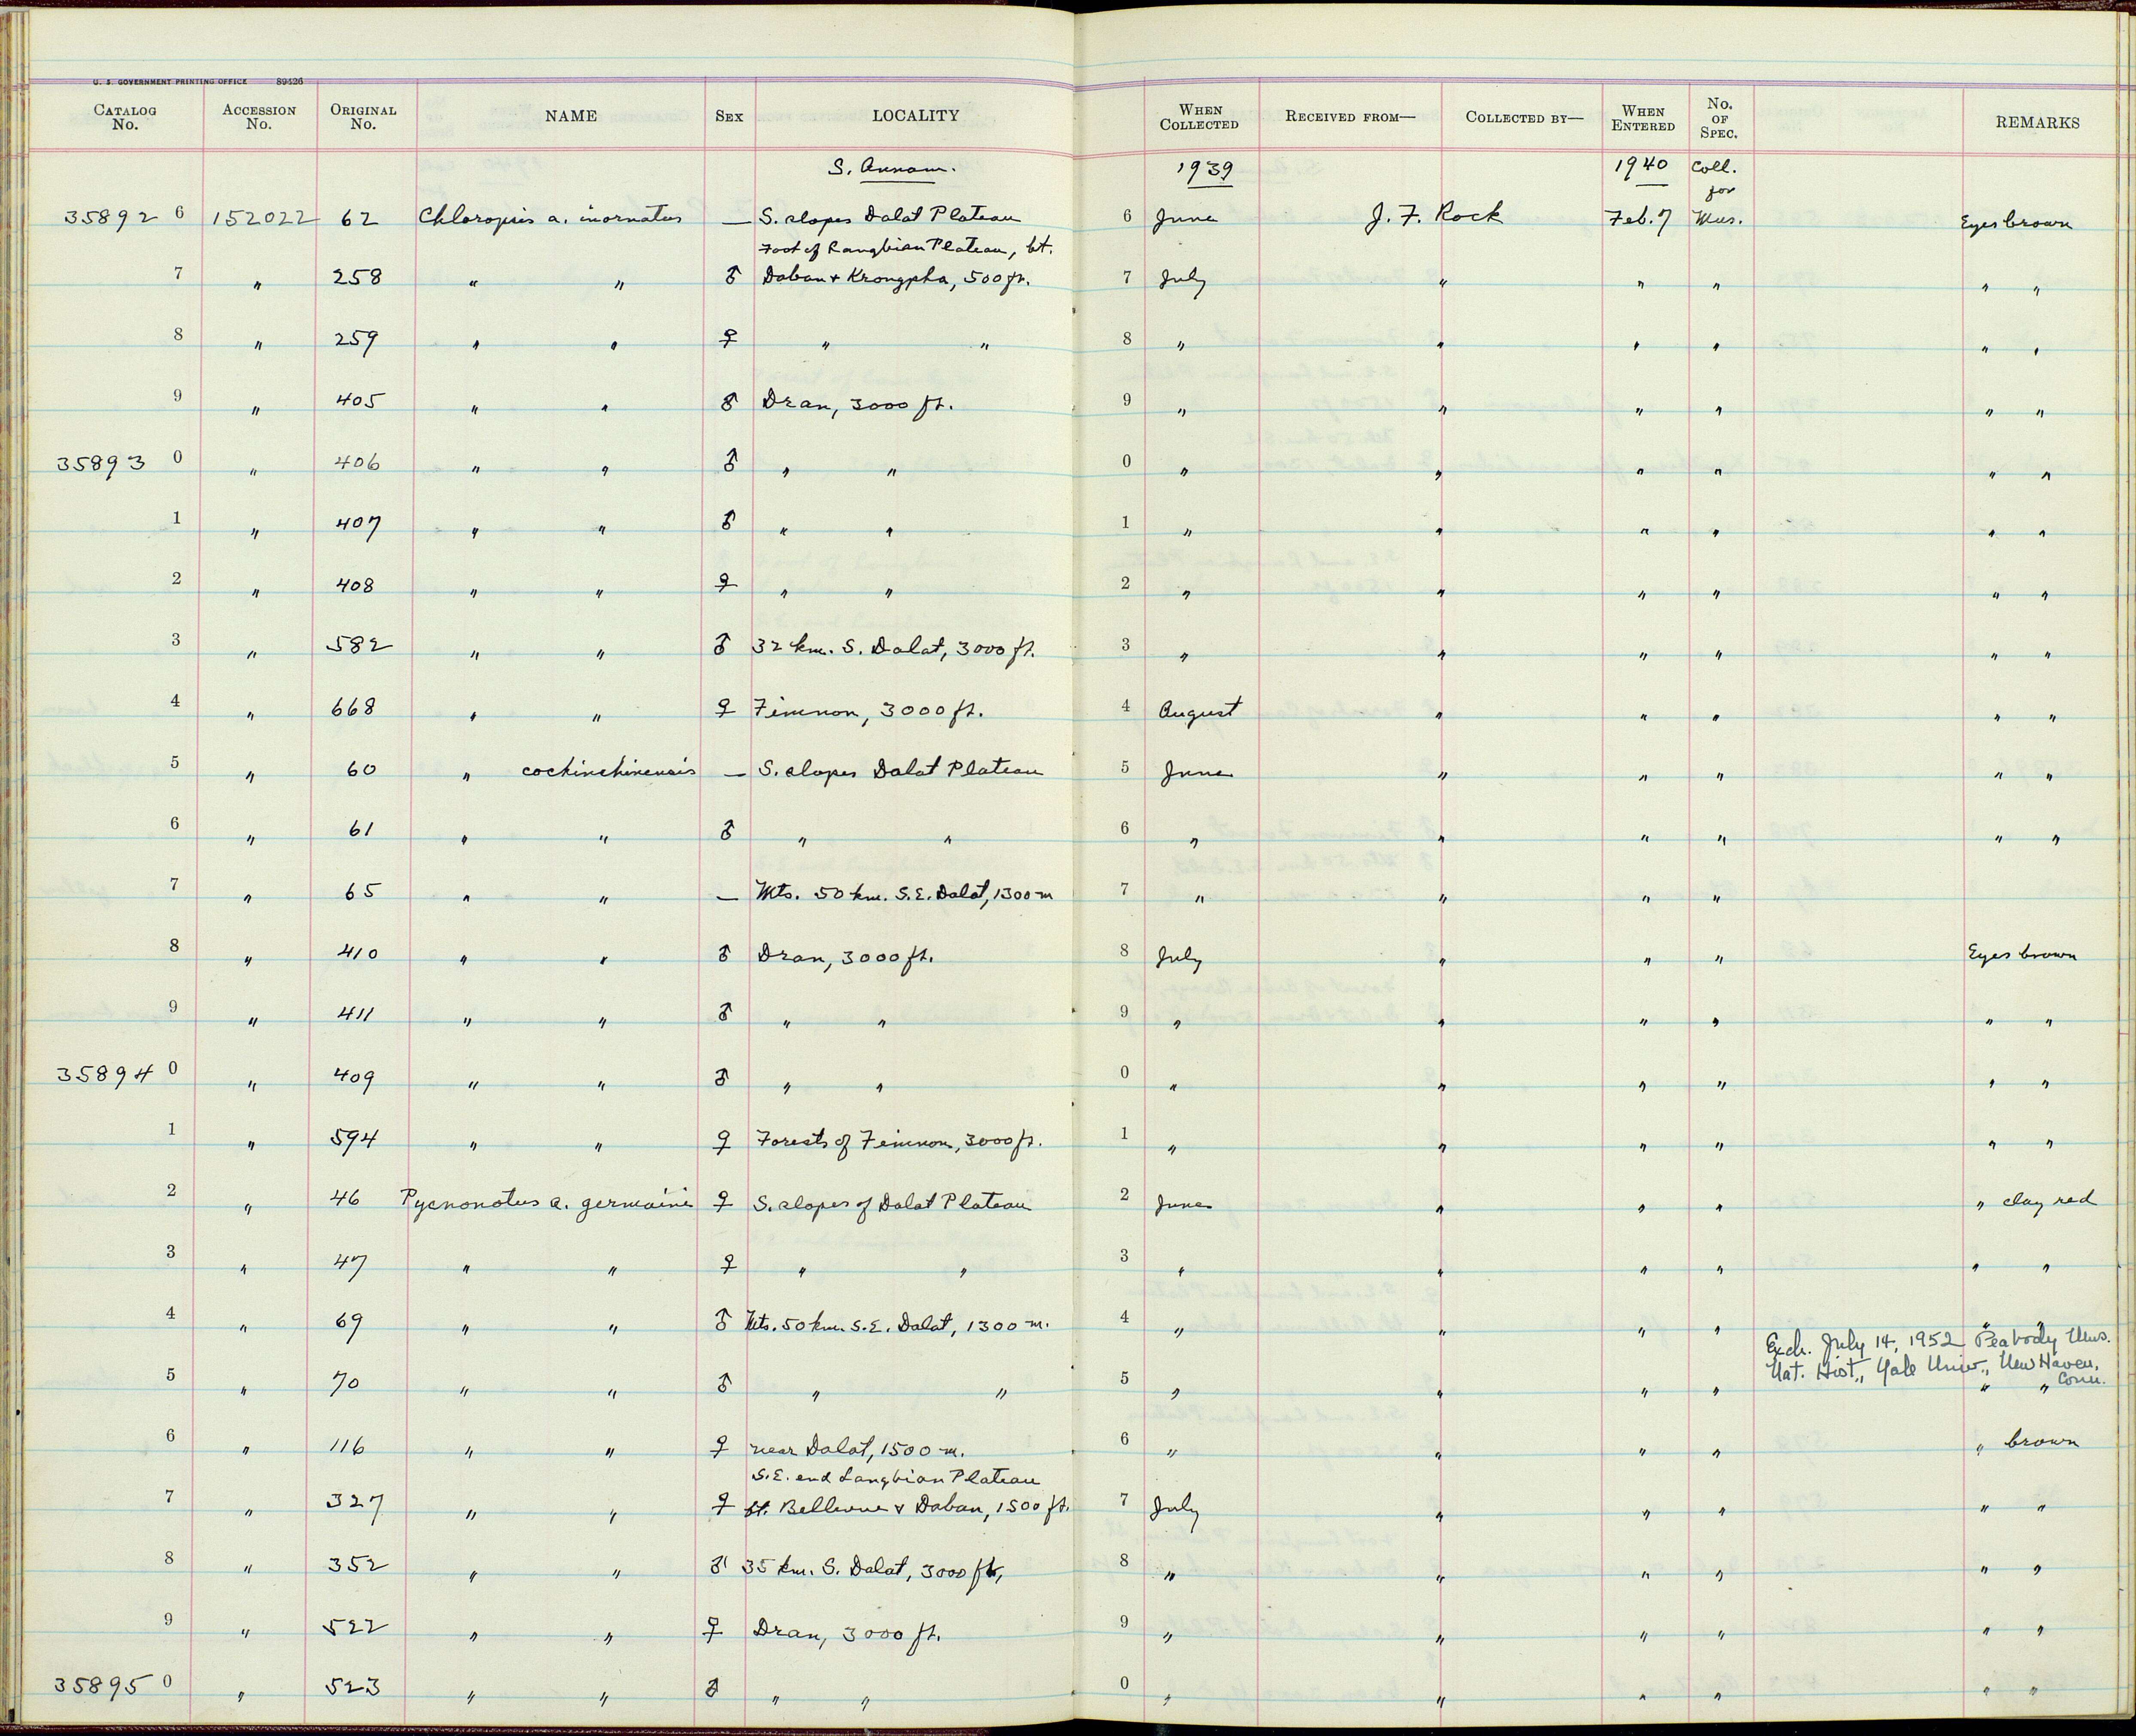 U. S. GOVERNMENT PRINTING OFFICE 89426
CATALOG No. ACCESSION No. ORIGINAL No. NAME SEX LOCALITY WHEN COLLECTED RECEIVED FROM— COLLECTED BY— WHEN ENTERED No. OF SPEC. REMARKS
S. Annam. 1939 1940 Coll.
for
35892 6 152022 62 Chloropsis a. inornatus — S. slopes Dalat Plateau 6 June J. F. Rock Feb. 7 Mus. Eyes brown
Foot of Langbian Plateau, bt.
7 " 258 " " ♂ Daban & Krongpha, 500 ft. 7 July " " " " "
8 " 259 " " ♀ " " 8 " " " " " "
9 " 405 " " ♂ Dran, 3000 ft. 9 " " " " " "
35893 0 " 406 " " ♂ " " 0 " " " " " "
1 " 407 " " ♂ " " 1 " " " " " "
2 " 408 " " ♀ " " 2 " " " " " "
3 " 582 " " ♂ 32 km. S. Dalat, 3000 ft. 3 " " " " " "
4 " 668 " " ♀ Fimnon, 3000 ft. 4 August " " " " "
5 " 60 " cochinchinensis — S. slopes Dalat Plateau 5 June " " " " "
6 " 61 " " ♂ " " 6 " " " " " "
7 " 65 " " — Mts. 50 km. S.E. Dalat, 1300 m 7 " " " "
8 " 410 " " ♂ Dran, 3000 ft. 8 July " " " Eyes brown
9 " 411 " " ♂ " " 9 " " " " " "
35894 0 " 409 " " ♂ " " 0 " " " " " "
1 " 594 " " ♀ Forests of Fimnon, 3000 ft. 1 " " " " " "
2 " 46 Pycnonotus a. germaini ♀ S. slopes of Dalat Plateau 2 June " " " " clay red
3 " 47 " " ♀ " " 3 " " " " " "
4 " 69 " " ♂ Mts. 50 km. S.E. Dalat, 1300 m. 4 " " " " " "
Exch. July 14, 1952 Peabody Mus.
Nat. Hist., Yale Univ., New Haven,
Conn.
5 " 70 " " ♂ " " 5 " " " " " "
6 " 116 " " ♀ near Dalat, 1500 m. 6 " " " " " brown
S.E. end Langbian Plateau
7 " 327 " " ♀ bt. Bellevue & Daban, 1500 ft. 7 July " " " " "
8 " 352 " " ♂ 35 km. S. Dalat, 3000 ft, 8 " " " " " "
9 " 522 " " ♀ Dran, 3000 ft. 9 " " " " " "
35895 0 " 523 " " ♂ " " 0 " " " " " "